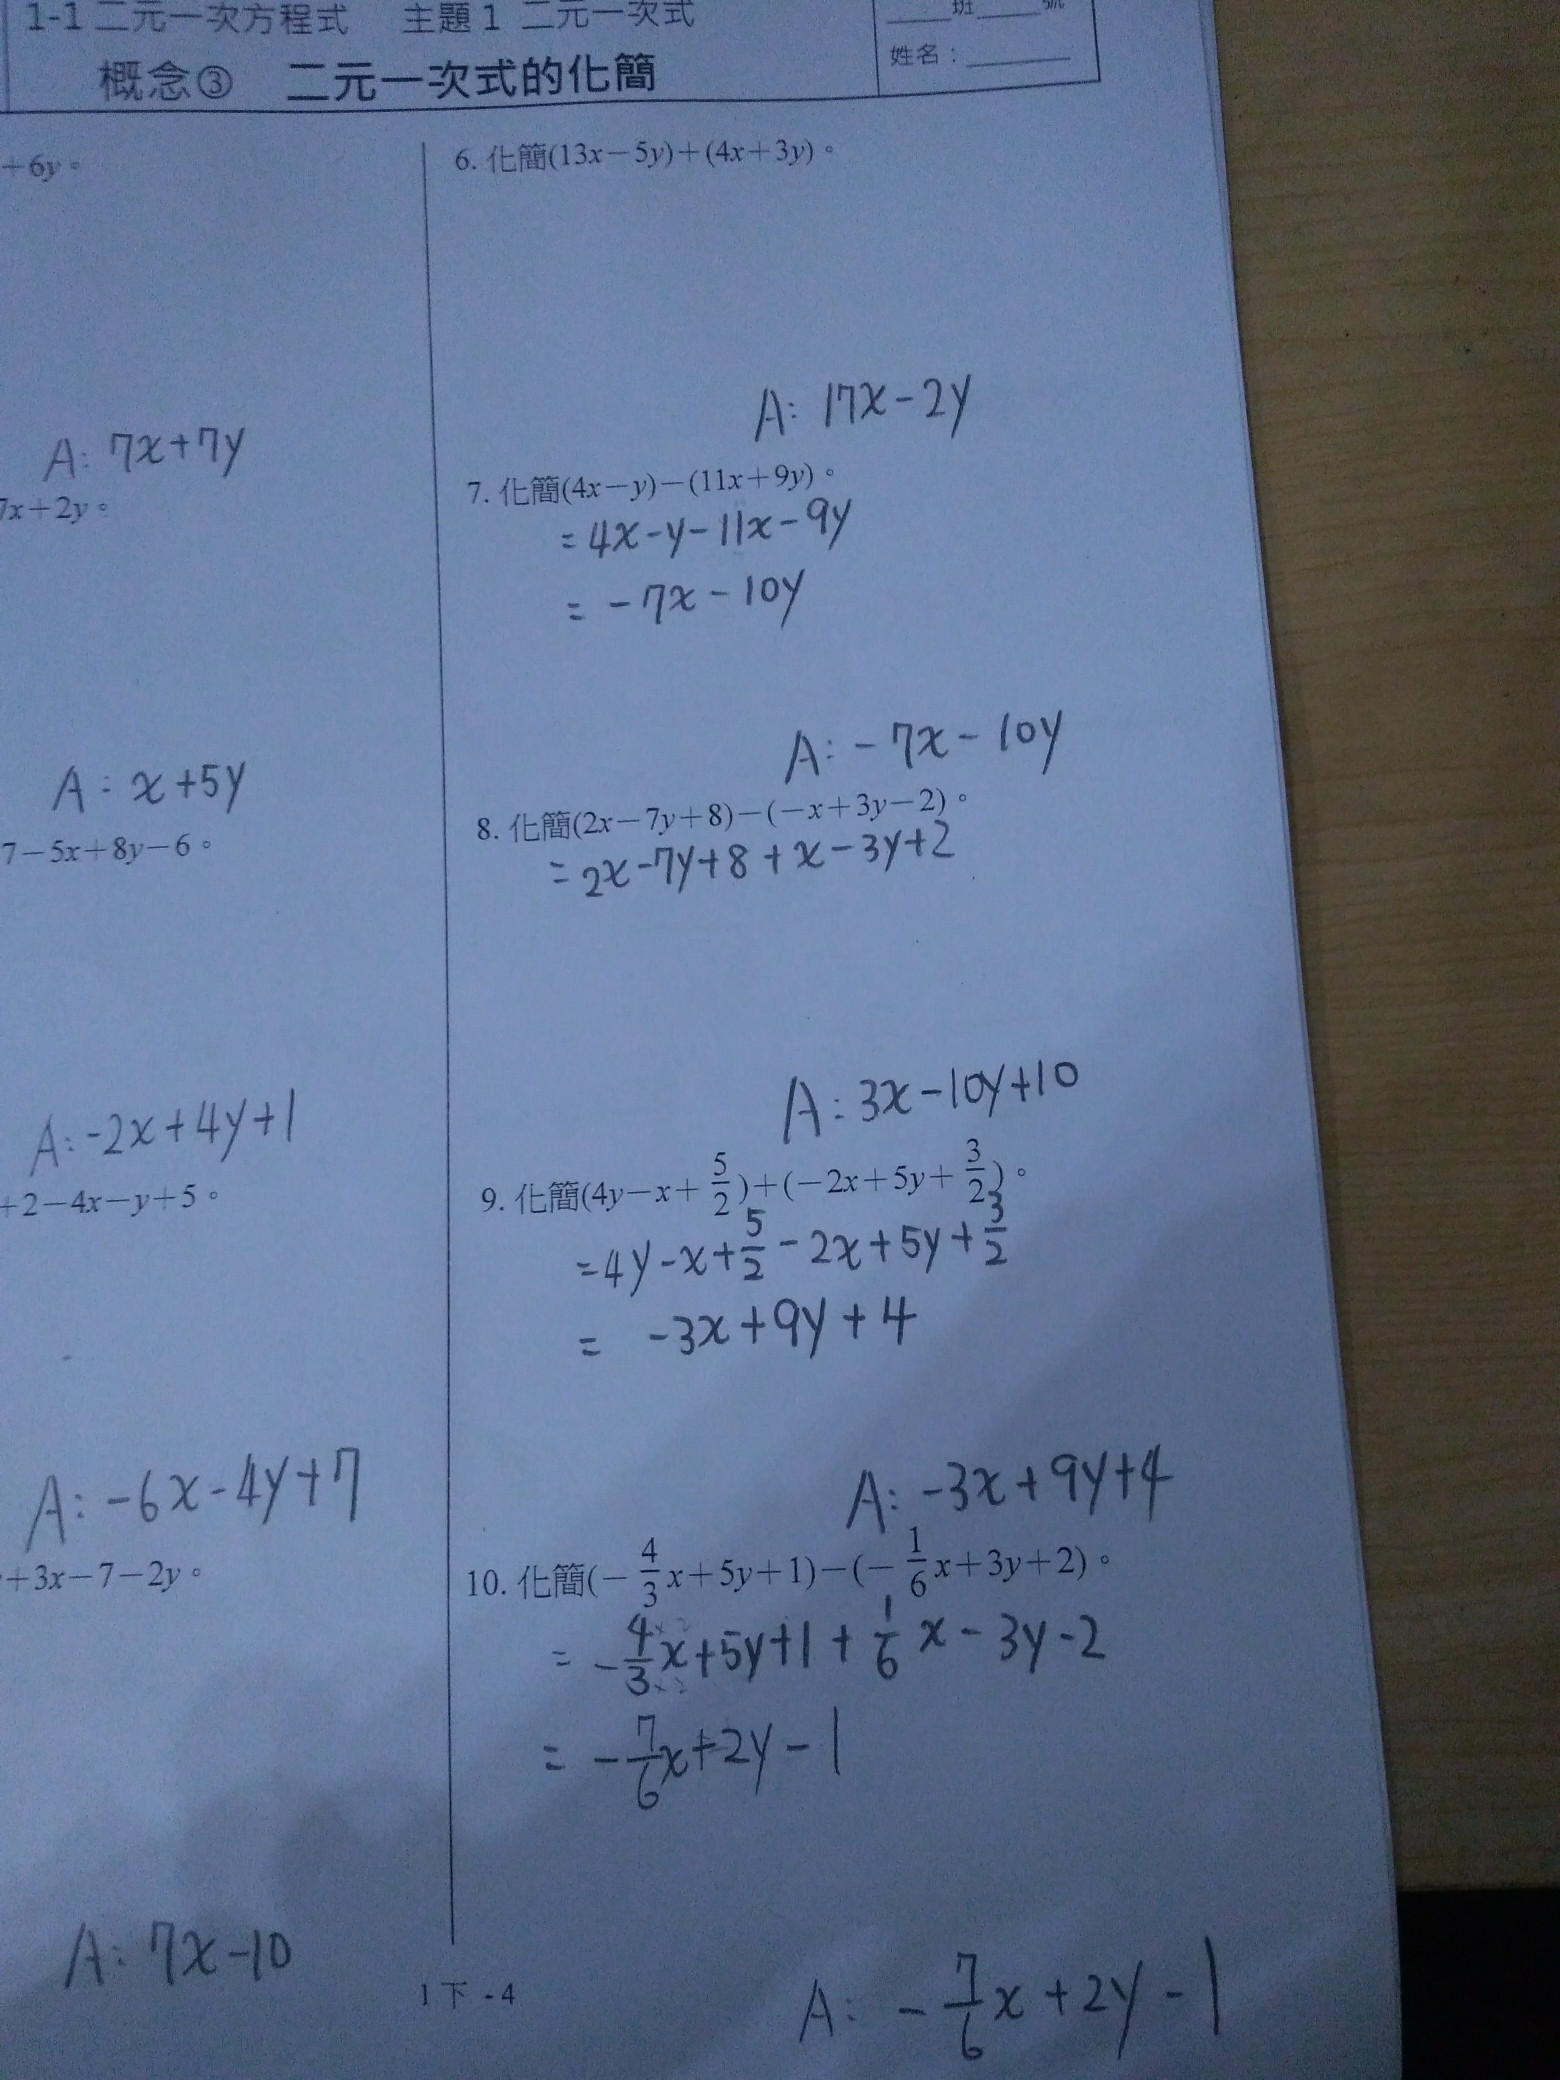 1-1 二元一次方程式 主題1 二元一次式
概念③ 二元一次式的化簡
____班____號
姓名:______
+6y。
A: 7x+7y
7x+2y。
A: x+5y
7-5x+8y-6。
A: -2x+4y+1
+2-4x-y+5。
A: -6x-4y+7
+3x-7-2y。
A: 7x-10
6. 化簡(13x-5y)+(4x+3y)。
A: 17x-2y
7. 化簡(4x-y)-(11x+9y)。
= 4x-y-11x-9y
= -7x-10y
A: -7x-10y
8. 化簡(2x-7y+8)-(-x+3y-2)。
= 2x-7y+8+x-3y+2
A: 3x-10y+10
9. 化簡(4y-x+5/2)+(-2x+5y+3/2)。
= 4y-x+5/2-2x+5y+3/2
= -3x+9y+4
A: -3x+9y+4
10. 化簡(-4/3x+5y+1)-(-1/6x+3y+2)。
= -4/3x+5y+1+1/6x-3y-2
= -7/6x+2y-1
A: -7/6x+2y-1
1下-4